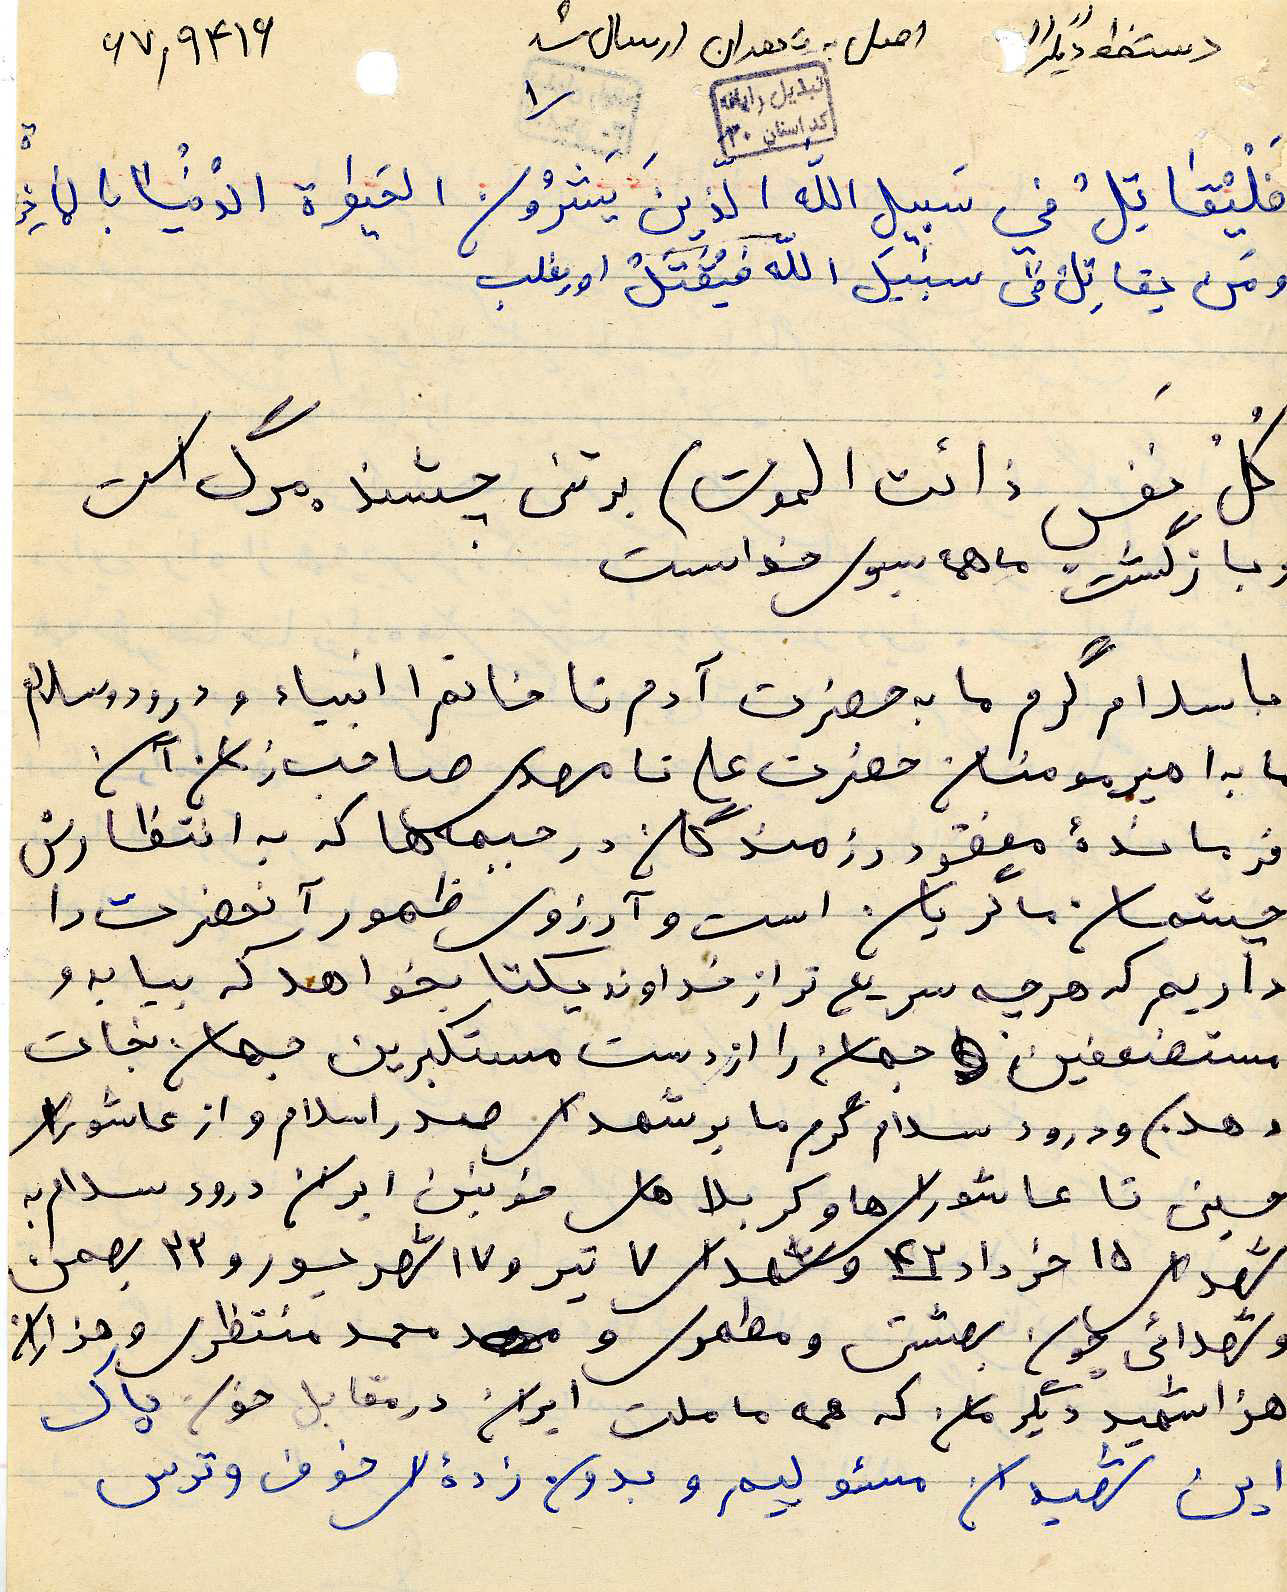 دستخط دیگران اصل به تهران ارسال شد ۶۷٫۹۴۱۶
۱
تبدیل رایانه
کد استان ۳۰
فَلْیُقاتِلْ في سَبیلِ اللّهِ الَّذینَ یَشْرُونَ الحَیوٰة الدُّنْیٰا بالاٰخِرَةِ
ومَن یقاتِلْ فی سَبیلِ اللّه فَیُقْتَلْ اویغلب
کُلُ نَفس ذائت الموت) برتنی چشند مرگ است
و بازگشت ماهمه بسوی خداست
با سلام گرم ما به حضرت آدم تا خاتم انبیاء و درود وسلام
ما به امیر مومنان حضرت علی تا مهدی صاحب زمان آن
فرماندهٔ مفقود رزمندگان در جبهه‌ها که به انتظارش
چشمان ما گریان است و آرزوی ظهور آنحضرت را
داریم که هرچه سریع تر از خداوند یکتا بخواهد که بیابد و
مستضعفین جهان را از دست مستکبرین جهان نجات
دهد) و درود سلام گرم ما بر شهدای صدر اسلام و از عاشورای
حسینی تا عاشورای ها و کربلا های خونین ایران درود سلام به
شهدای ۱۵ خرداد ۴۲ و شهدای ۷ تیر و ۱۷ شهریور و ۲۲ بهمن
و شهدائی چون بهشتی و مطهری و محمد منتظری و هزاران
هزار شهید دیگرمان که همه ما ملت ایران در مقابل خون پاک
این شهیدان مسئولیم و بدون ذرهٔ ای خوف و ترس